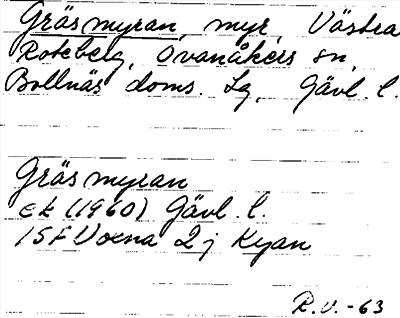 Gräsmyran, myr, Västra
Roteberg, Ovanåkers sn,
Bollnäs doms. Lg, Gävl. l.
Gräsmyran
ek (1960) Gävl. l.
15F Voxna 2 j Kyan
R.V. -63